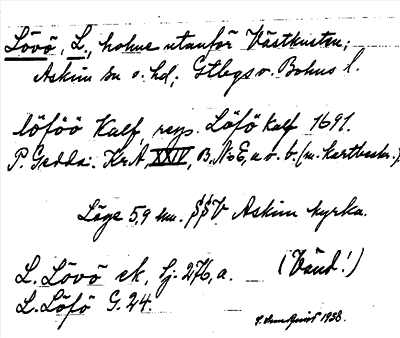 Lövö, L., holme utanför Västkusten;
Askim sn o. hd; Gtbgs o. Bohus l.
löföö Kalf resp. Löfö kalf 1691.
P. Gedda. KrA, XXIV, B. N:o E, a o. b. (m. kartbeskr.)
Läge 5,9 km. SSV Askim kyrka.
L. Lövö ek. Sj. 276, a. (Vänd!)
L. Löfö G. 24.
1938.